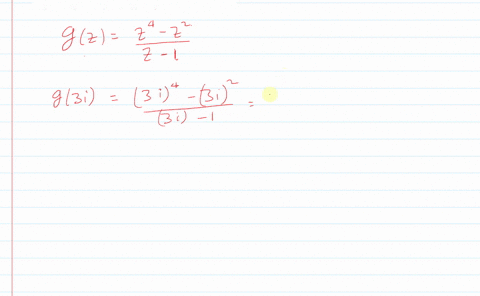 g(z) = (z⁴ - z²)/(z - 1)
g(3i) = ((3i)⁴ - (3i)²)/((3i) - 1) =